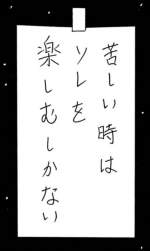 苦しい時は
ソレを
楽しむしかない